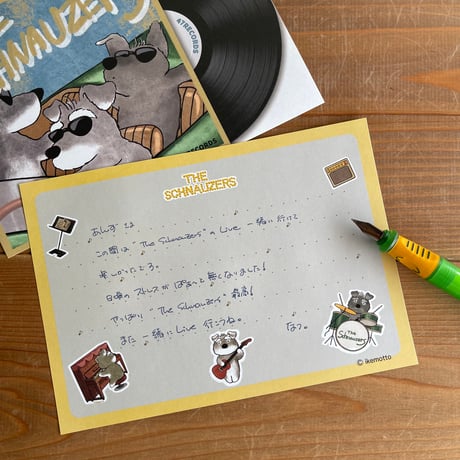 THE
SCHNAUZERS
47RECORDS
RECORDS
THE
SCHNAUZERS
あんずさま
この間は The Schnauzers の Live 一緒に行けて
楽しかったころ。
日頃のストレスがぱぁーっと無くなりました!
やっぱり The Schnauzers 最高!
また一緒に Live 行こうね。
なつ。
The
Schnauzers
© ikemotto